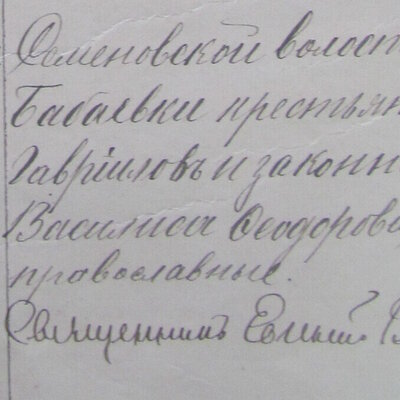 Семеновской волост
Бабаевки крестьян
Гавріиловъ и законн
Василиса Феодорова
православные.
Священникъ